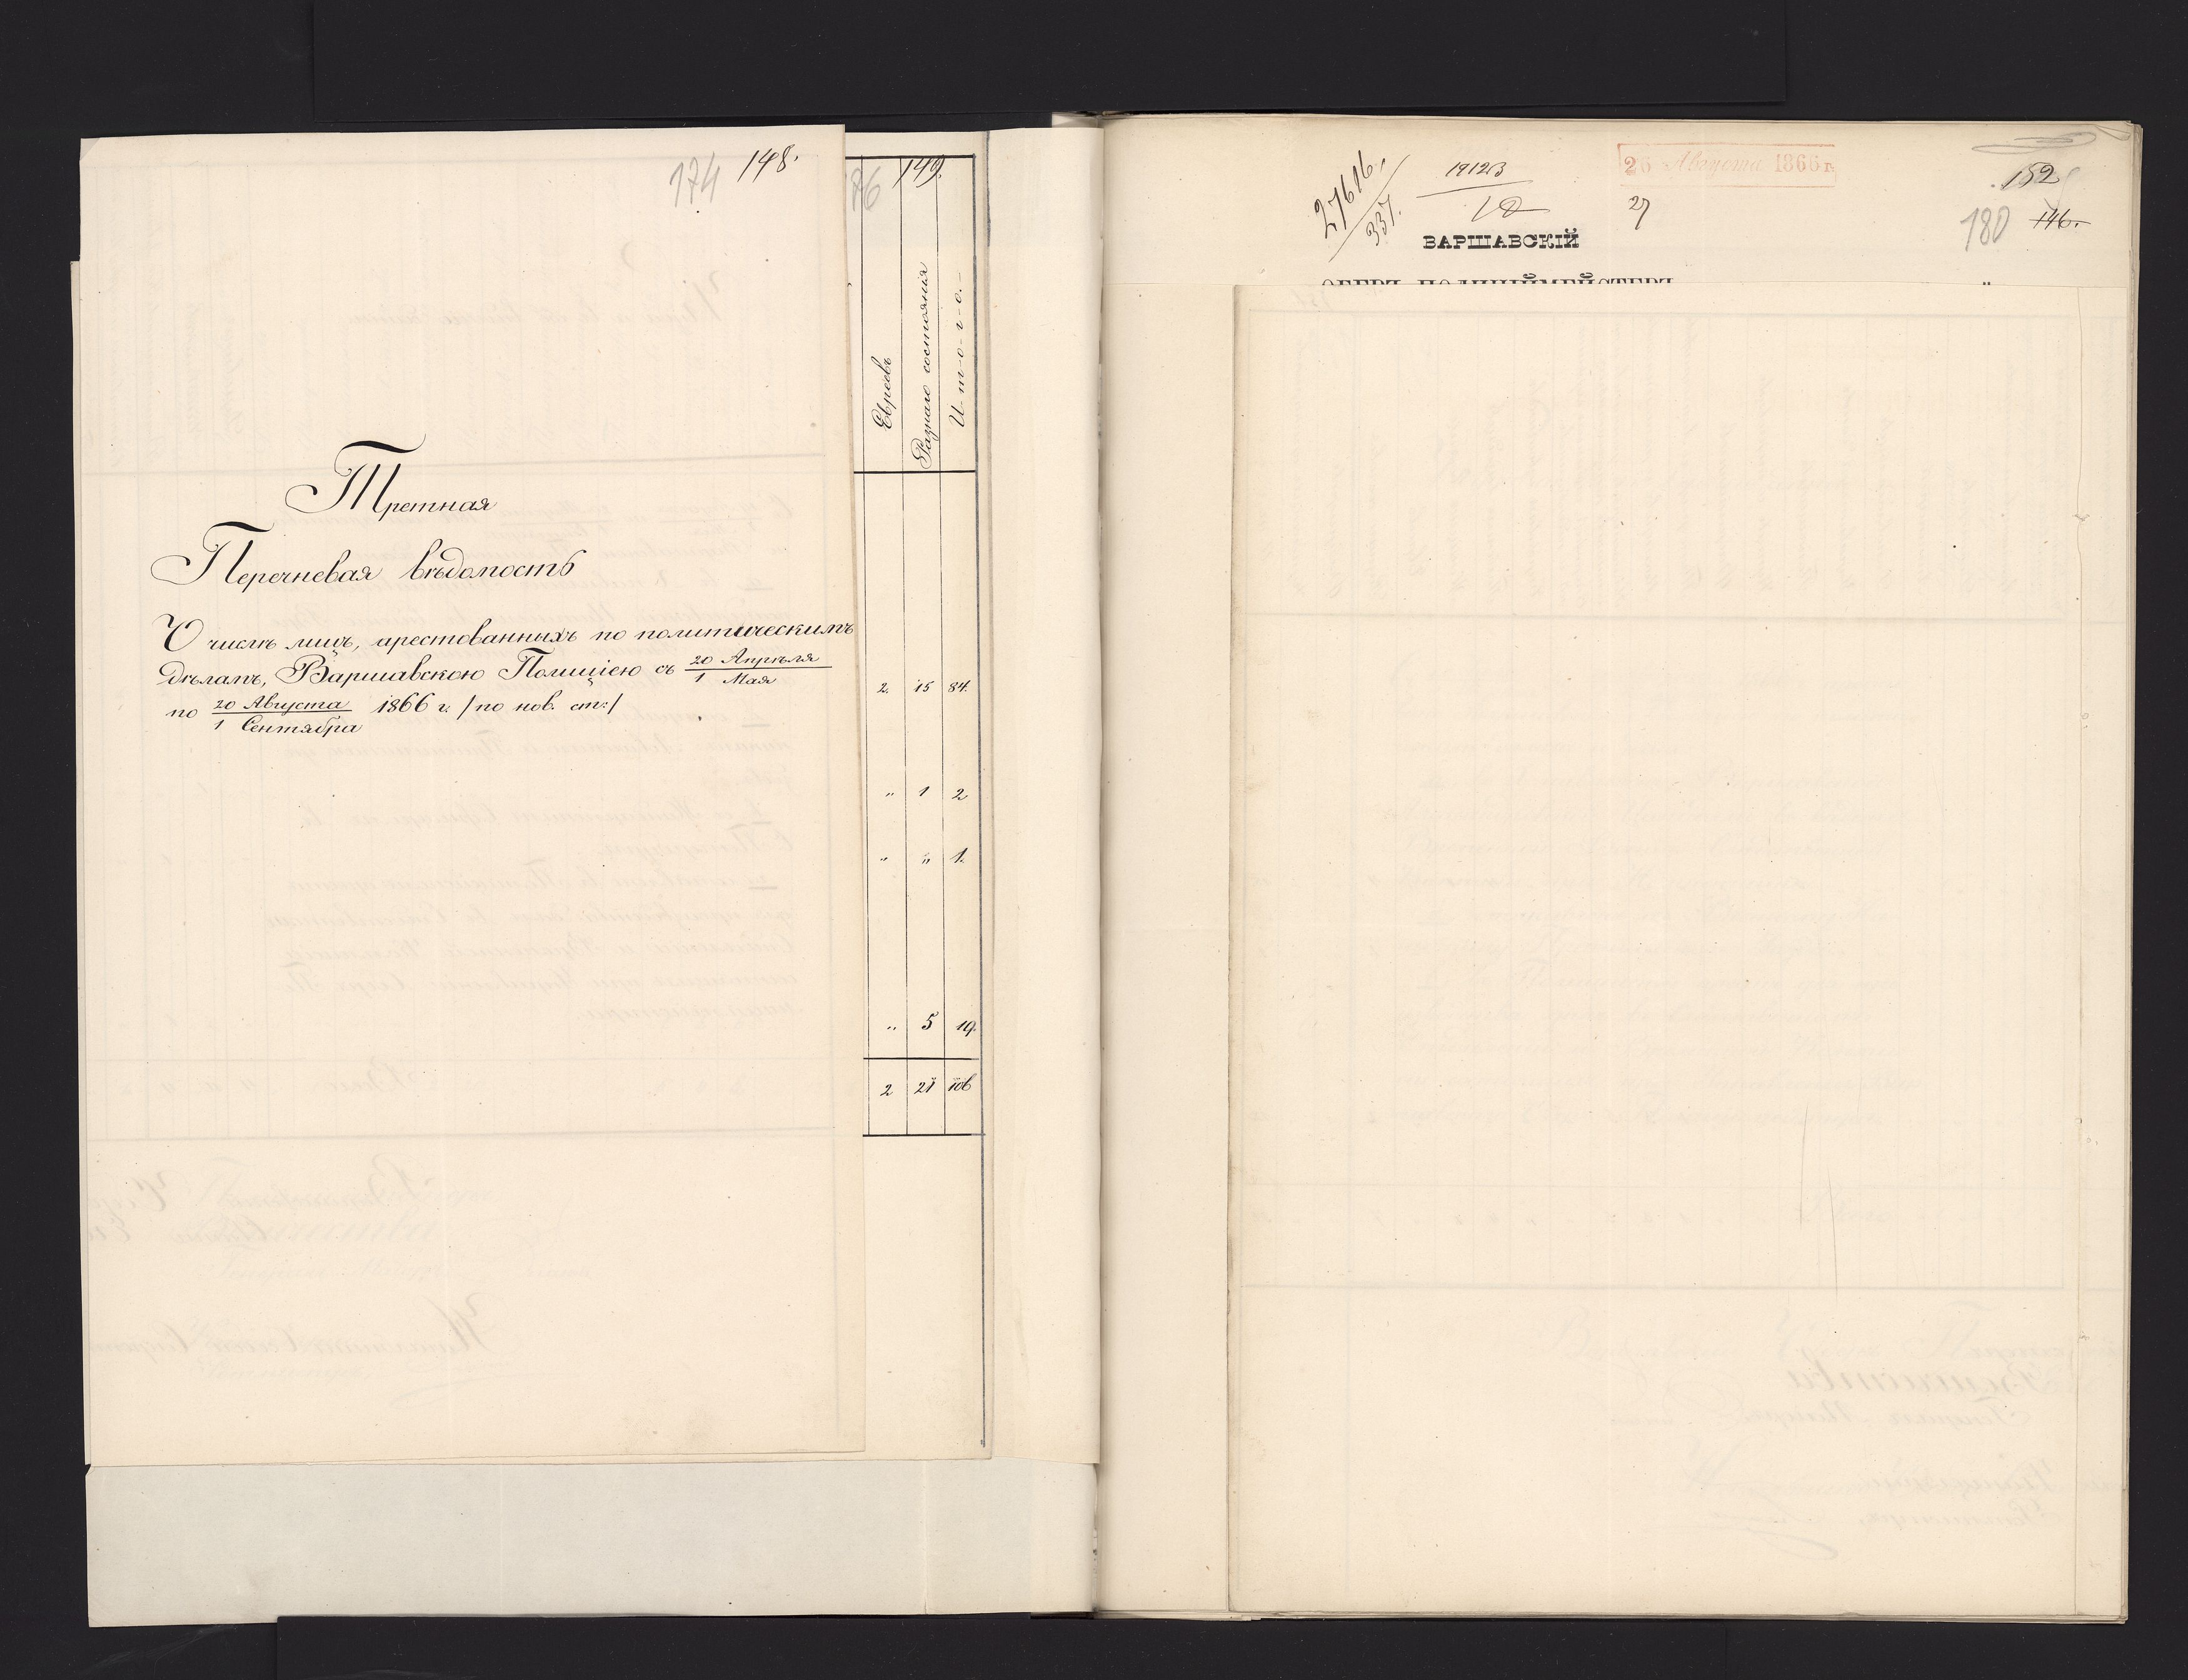 174 148.
Третная
Перечневая вѣдомость
О числѣ лицъ, арестованныхъ по политическимъ
дѣламъ, Варшавскою Полиціею съ 20 Апрѣля / 1 Мая
по 20 Августа / 1 Сентября 1866 г. /по нов. ст./
76 149.
Евреевъ
Разнаго состоянія
И-т-о-г-о.-
2. 15 84.
" 1 2
" " 1.
" 5 19.
2 21 106
27616.
337.
19123
10
26 Августа 1866 г.
27
152
180 146.
ВАРШАВСКІЙ
ОБЕРЪ-ПОЛИЦІЙМЕЙСТЕРЪ